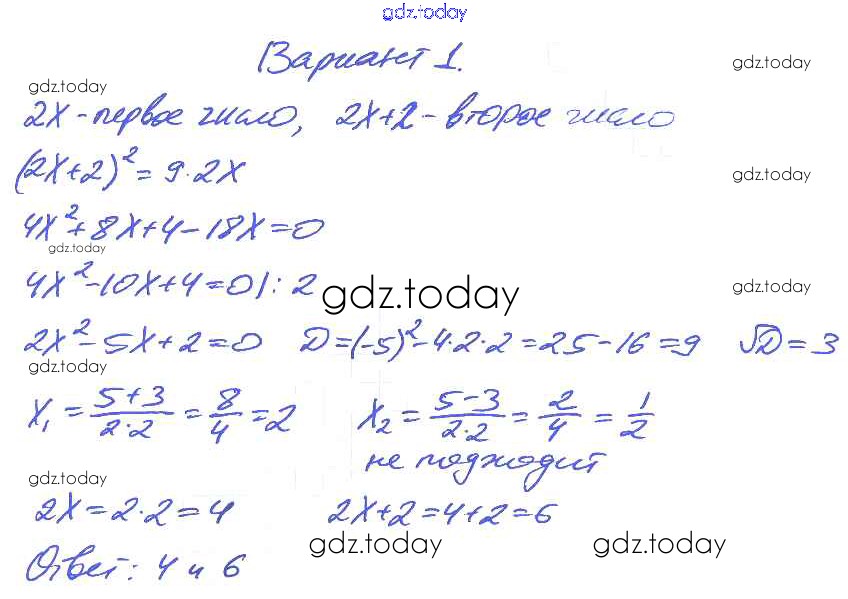 gdz.today
Вариант 1.
gdz.today
gdz.today
2x - первое число, 2x+2 - второе число
(2x+2)² = 9·2x
gdz.today
4x² + 8x + 4 - 18x = 0
gdz.today
4x² - 10x + 4 = 0 | : 2
gdz.today
gdz.today
2x² - 5x + 2 = 0 D = (-5)² - 4·2·2 = 25 - 16 = 9 √D = 3
gdz.today
x₁ = (5+3)/(2·2) = 8/4 = 2 x₂ = (5-3)/(2·2) = 2/4 = 1/2
не подходит
gdz.today
2x = 2·2 = 4 2x+2 = 4+2 = 6
gdz.today gdz.today
Ответ: 4 и 6